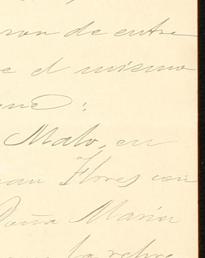 ron de entre
e el mismo
one:
Malo, en
uan Flores con
Doña María
la rebre